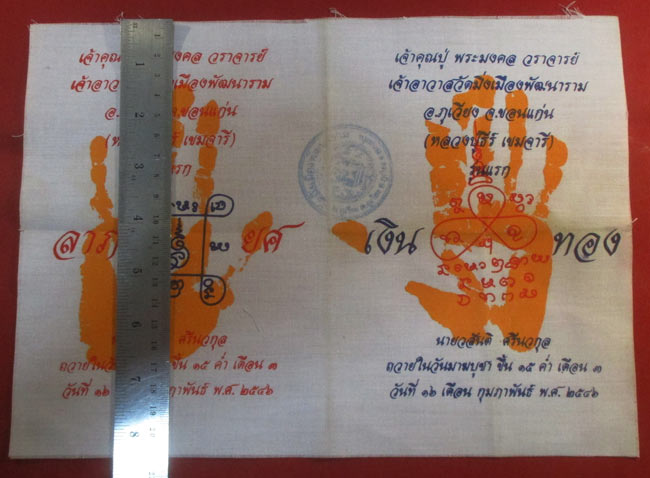 เจ้าคุณ มงคล วราจารย์
เจ้าอา เมืองพัฒนาราม
อ. จ.ขอนแก่น
(ห ธีร์ เขมจารี)
แรก
ลาภ ยศ
ศรีนวกุล
ถวายในวัน ขึ้น ๑๕ ค่ำ เดือน ๓
วันที่ ๑๖ กุมภาพันธ์ พ.ศ. ๒๕๔๖
1
2
3
4
5
6
7
เจ้าคุณปู่ พระมงคล วราจารย์
เจ้าอาวาสวัดมิ่งเมืองพัฒนาราม
อ.ภูเวียง จ.ขอนแก่น
(หลวงปู่ธีร์ เขมจารี)
รุ่นแรก
เงิน ทอง
นายวสันติ ศรีนวกุล
ถวายในวันมาฆบูชา ขึ้น ๑๕ ค่ำ เดือน ๓
วันที่ ๑๖ เดือน กุมภาพันธ์ พ.ศ. ๒๕๔๖